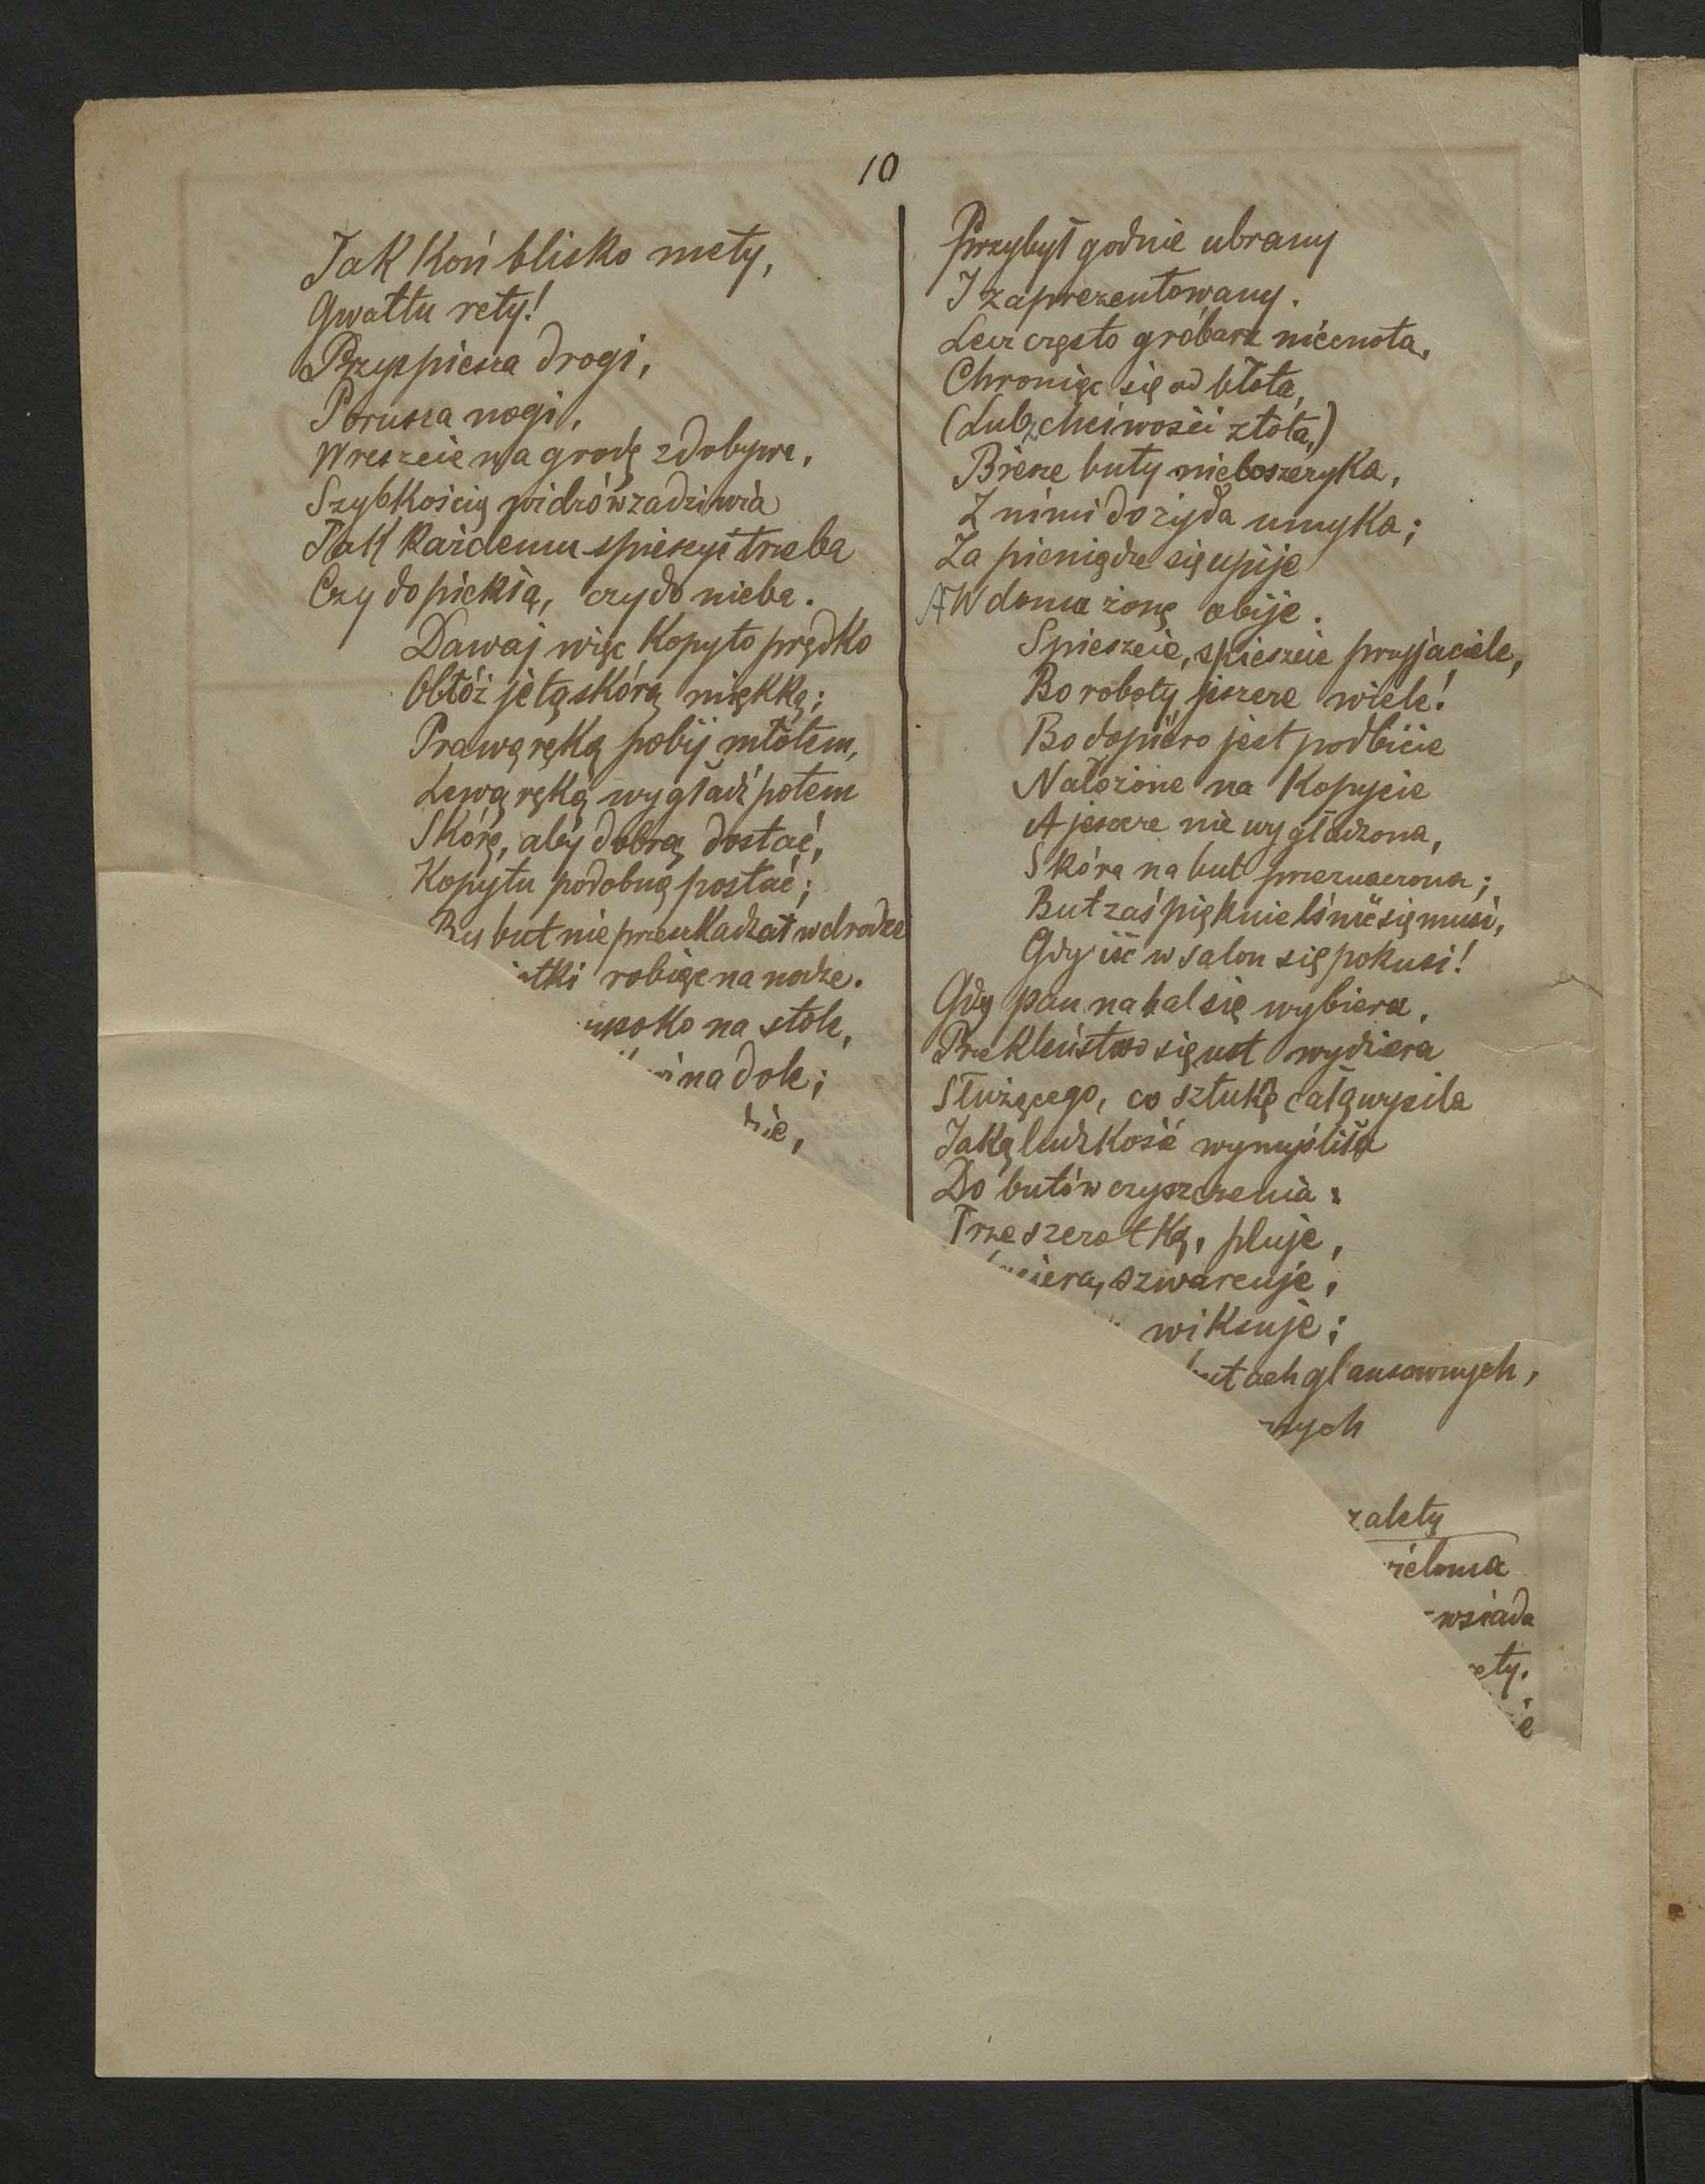 10
Jak koń blisko mety,
Gwałtu rety!
Przyspiesza drogi,
Porusza nogi,
Wreszcie nagrodę zdobywa,
Szybkością widzów zadziwia
Tak każdemu spieszyć trzeba
Czy do piekła, czy do nieba.
Dawaj więc kopyto prędko
Obłóż je tą skórą miękką;
Prawą ręką pobij młotem,
Lewą ręką wygładź potem
Skórę, aby dobrą dostać,
Kopytu podobną postać;
By but nie przeszkadzał w drodze
robiąc na nodze.
na stole,
na dole;
Przybył godnie ubrany
I zaprezentowany.
Lecz często gróbarz niécnota,
Chroniąc się od błota,
(Lub z chciwości złota,)
Bierze buty nieboszczyka,
Z nimi do żyda umyka;
Za pieniądze się upije
A W domu żonę obije.
Spieszcie, spieszcie przyjaciele,
Bo roboty jeszcze wiele!
Bo dopiéro jest podbicie
Nałożone na kopycie
A jeszcze nie wygładzona,
Skóra na but przeznaczona;
But zaś pięknie lśnić się musi,
Gdy iść w salon się pokusi!
Gdy pan na bal się wybiera,
Przekleństwo się z ust wydziera
Służącego, co sztukę całą wysila
Jaką ludzkość wymyśliła
Do butów czyszczenia:
Trze szczotką, pluje,
szwarcuje,
wiksuje;
butach glansownych,
zalety
wsiada